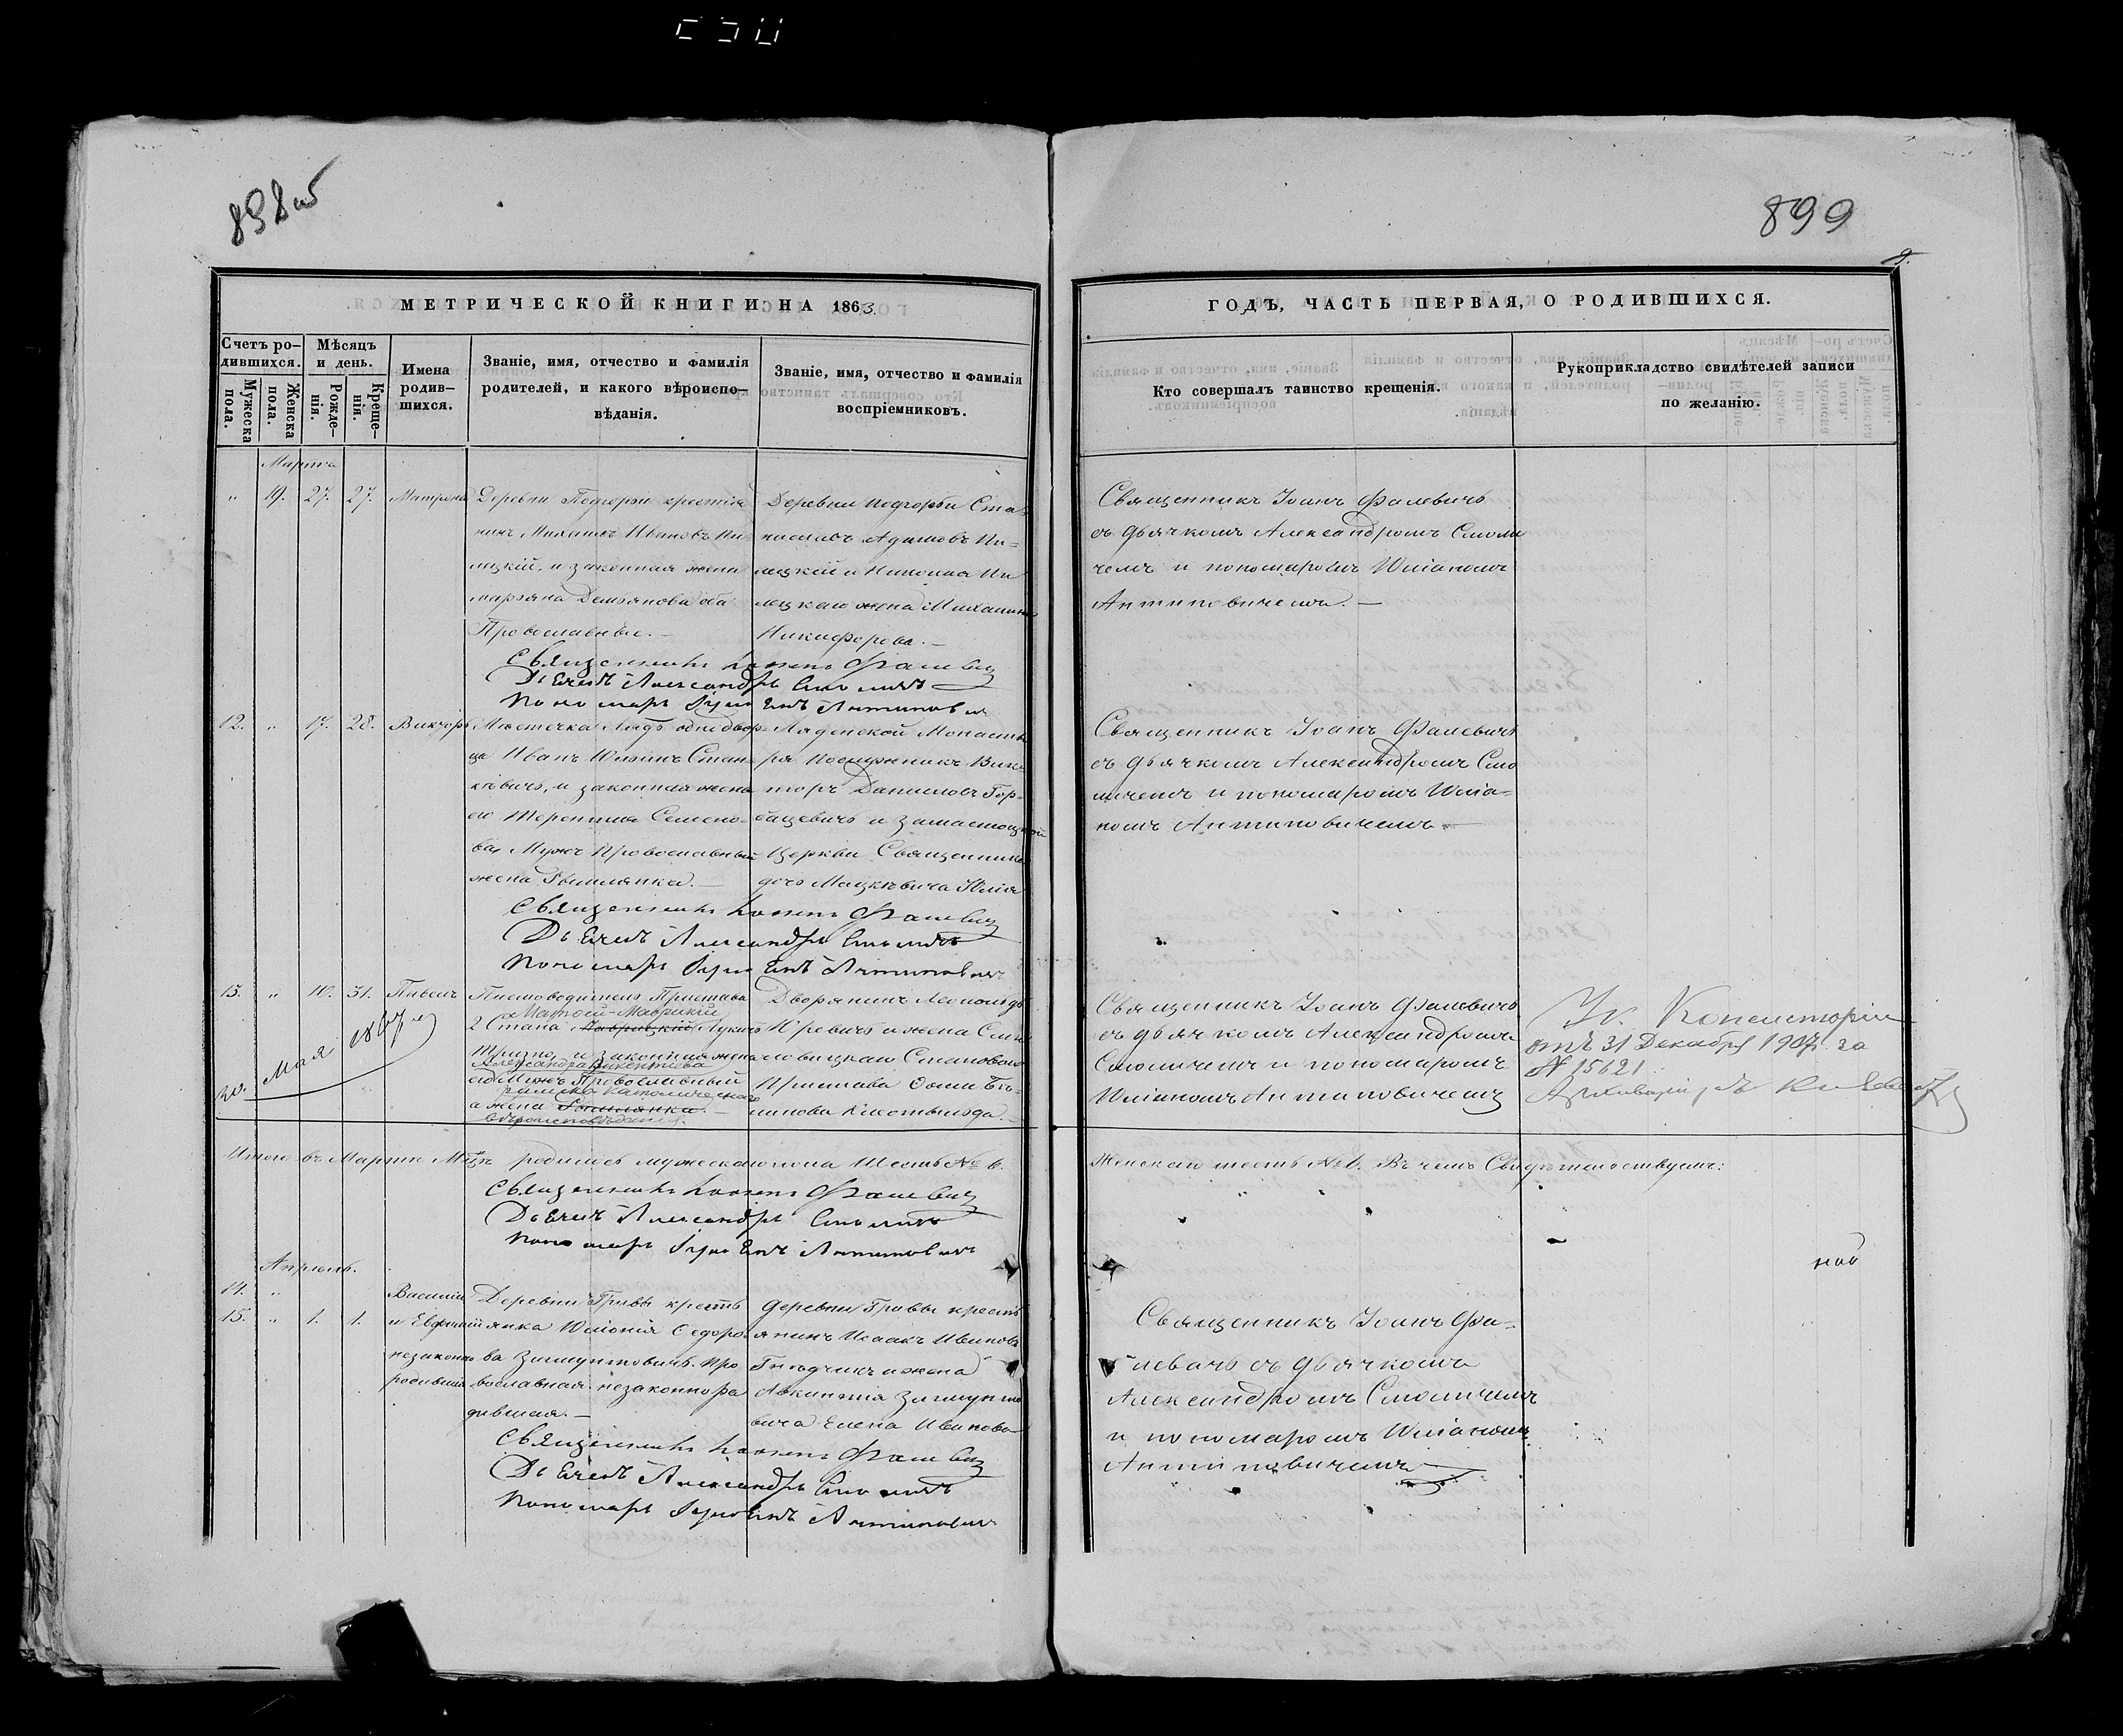 898 об
899
9.
МЕТРИЧЕСКОЙ КНИГИ НА 1863.
ГОДЪ, ЧАСТЬ ПЕРВАЯ, О РОДИВШИХСЯ.
Счетъ ро-
дившихся.
Мужеска
пола.
Женска
пола.
Мѣсяцъ
и день.
Рожде-
нія.
Креще-
нія.
Имена
родив-
шихся.
Званіе, имя, отчество и фамилія
родителей, и какого вѣроиспо-
вѣданія.
Званіе, имя, отчество и фамилія
воспріемниковъ.
Кто совершалъ таинство крещенія.
Рукоприкладство свидѣтелей записи
по желанію.
Марта
" 19. 27. 27. Матрона
Деревни Подгорья крестья
нинъ Михаилъ Ивановъ
и законная жена
Демьянова оба
Православные.—
Деревни Подгорья Ста-
ниславъ Адамовъ
жена
Никифорова.—
Священникъ Іоаннъ Фалевичъ
съ дьячкомъ Александромъ Смоли
чемъ и пономаромъ Юліаномъ
Антиповичемъ.—
Священникъ Іоаннъ Фалевичъ
Дьячекъ Александръ Смоличъ
Пономаръ Антиповичъ
12. " 17. 28. Викторъ
Мѣстечка Лядъ однодвор-
ца Иванъ Стан-
кѣвичъ, и законная жена
его Семено-
ва Мужъ Православный
жена Римлянка.—
Ляденской Монасты
ря Викъ
торъ Даниловъ Гор-
бацевичъ и
Церкви Священника
дочь Мацкѣвича Юлія
Священникъ Іоаннъ Фалевичъ
съ дьячкомъ Александромъ Смо
личемъ и пономаромъ Юліа-
номъ Антиповичемъ.—
Священникъ Іоаннъ Фалевичъ
Дьячекъ Александръ Смоличъ
Пономаръ Антиповичъ
13. " 10. 31. Павелъ
20. Мая
Писмоводителъ Пристава
Матѳей-Маврикій
2 Стана
и законная жена
Александра Викентьева
его Мужъ Православный
римско католическаго
а жена Римлянка.—
вѣроисповѣданія.
Дворянинъ Леопольдъ
Юревичъ и жена
Становаго
Пристава
Священникъ Іоаннъ Фалевичъ
съ дьячкомъ Александромъ
Смоличемъ и пономаромъ
Юліаномъ Антиповичемъ
Ук. Консисторіи
отъ 31 Декабря 1907 г. за
№ 15621
Архиваріусъ
Итого въ Мартѣ Мцѣ родилось мужескаго пола шесть № 6.
Женскаго шесть № 6. Въ чемъ Свидѣтельствуемъ:
Священникъ Іоаннъ Фалевичъ
Дьячекъ Александръ Смоличъ
Пономаръ Антиповичъ
Апрѣль.
14. "
15. " 1. 1.
Василій
и Евфимій
незаконно
родивши
Деревни Гривы кресть
янка Юліанія Ѳедоро
ва Зигмунтовичъ. Пра
вославная незаконноро
дившая.—
Деревни Гривы кресть
янинъ Исаакъ Ивановъ
и жена
Зигмунто
вича Елена Иванова
Священникъ Іоаннъ Фа-
левичъ съ дьячкомъ
Александромъ Смоличемъ
и пономаромъ Юліаномъ
Антиповичемъ
Священникъ Іоаннъ Фалевичъ
Дьячекъ Александръ Смоличъ
Пономаръ Антиповичъ